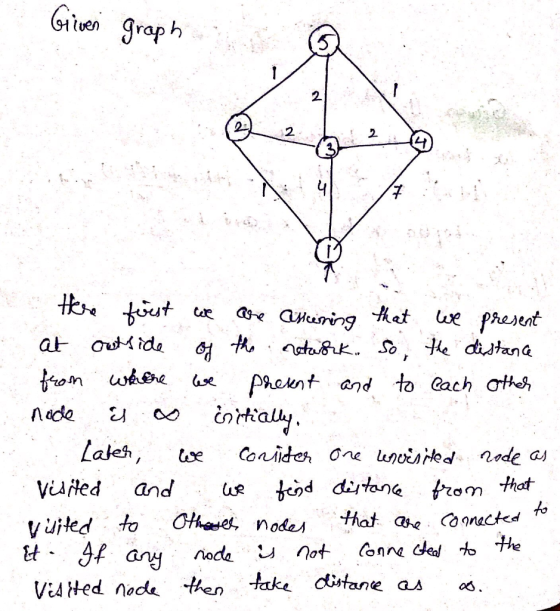 Given graph
5
1
2
1
2
2
2
3
4
1
4
7
1
Here first we are assuming that we present
at outside of the network. So, the distance
from where we present and to each other
node is ∞ initially.
Later, we consider one unvisited node as
visited and we find distance from that
visited to other nodes that are connected to
it. If any node is not connected to the
visited node then take distance as ∞.